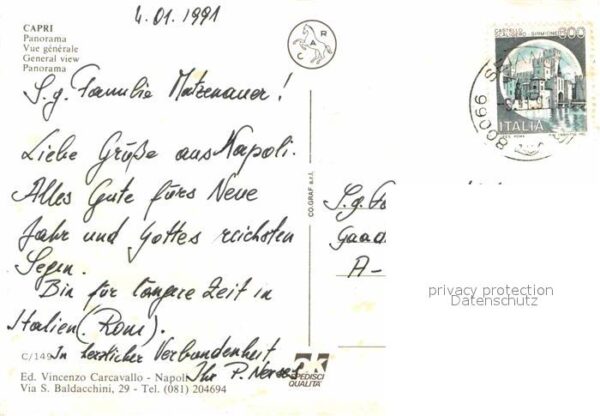 4.01.1991
CAPRI
Panorama
Vue générale
General view
Panorama
S.g. Familie Matzenauer!
Liebe Grüße aus Napoli.
Alles Gute fürs Neue
Jahr und Gottes reichsten
Segen.
Bin für längere Zeit in
Italien (Rom).
In herzlicher Verbundenheit
Ihr P.
C/149
Ed. Vincenzo Carcavallo - Napoli
Via S. Baldacchini, 29 - Tel. (081) 204694
CO.GRAF s.r.l.
CRAC
SPEDISCI
QUALITÀ
600
ITALIA
80099
S.g. Fa
Gaad
A-
privacy protection
Datenschutz